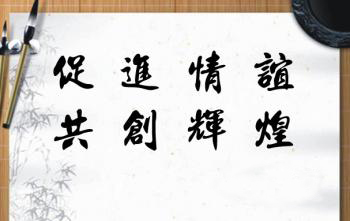 促進情誼
共創輝煌